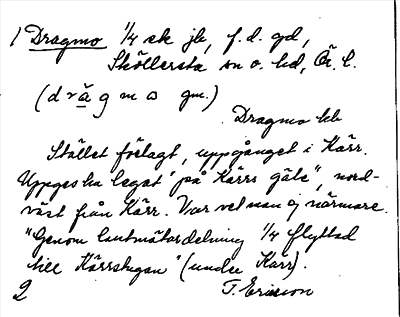 1 Dragmo 1/4 sk jb, f. d. gd,
Sköllersta sn o. hd, Ör. l.
(drăgmo gm.)
Dragmo hb
Stället förlagt, uppgånget i Kärr.
Uppges ha legat "på Kärrs gäle", nord-
väst från Kärr. Var vet man ej närmare.
"Genom lantmätardelning 1/4 flyttad
till Kärrstugan" (under Kärr).
2 T. Ericson